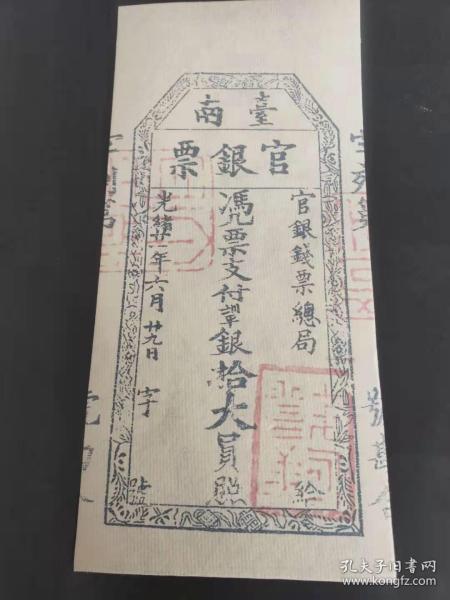 臺南
官銀票
官銀錢票總局 給
憑票支付 銀拾大員 照
光緒廿一年六月廿九日 字 號
孔夫子旧书网
www.kongfz.com